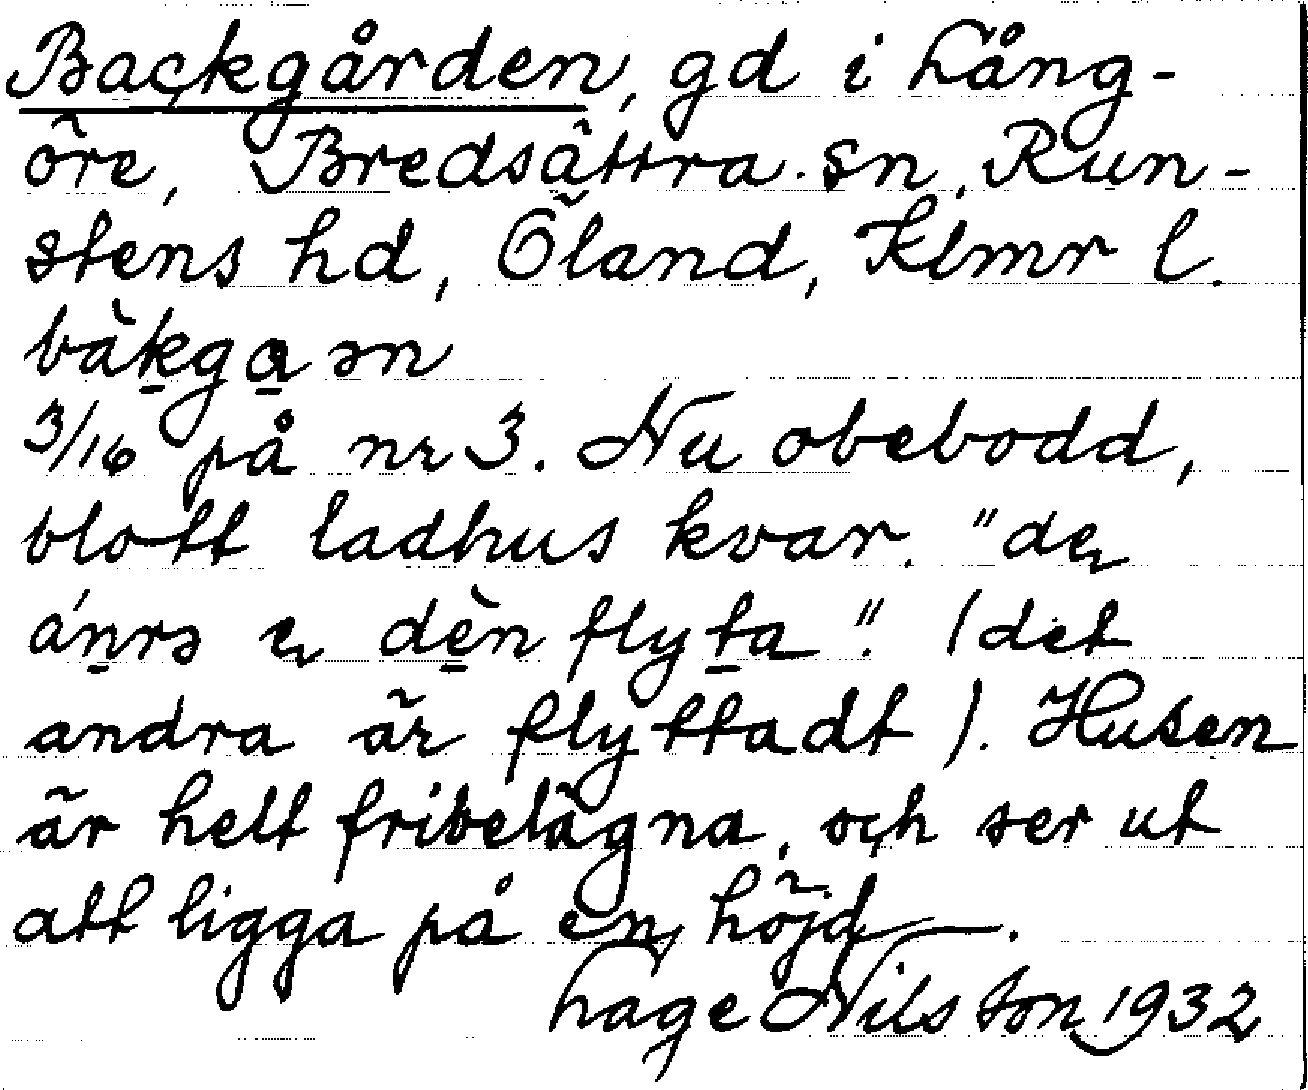 Backgården, gd i Lång-
öre, Bredsättra sn, Run-
stens hd, Öland, Klmr l.
bàk̲ga̲ən
3/16 på nr 3. Nu obebodd,
blott ladhus kvar. "de
án̲rə dè̲n flyt̲a". (det
andra är flyttadt). Husen
är helt fribelägna, och ser ut
att ligga på en höjd.
Lage Nilsson 1932